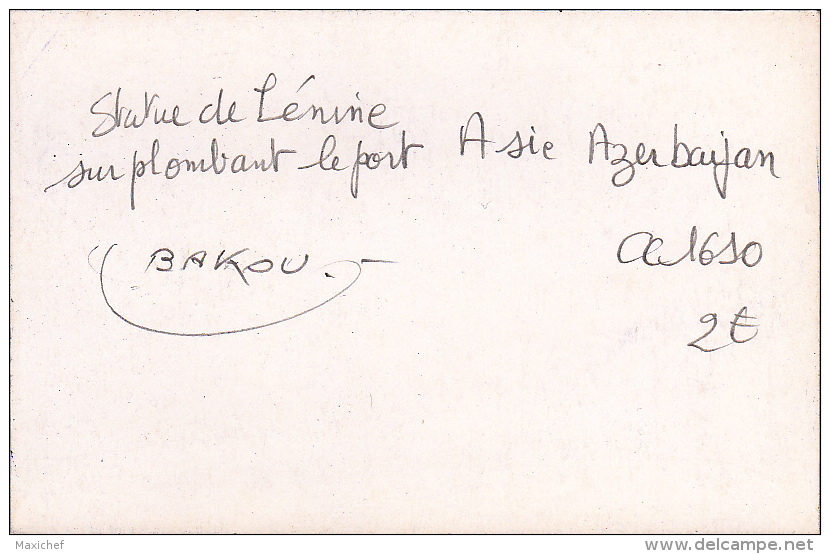 Statue de Lénine
surplombant le port Asie Azerbaijan
BAKOU.-
2€
Maxichef
www.delcampe.net